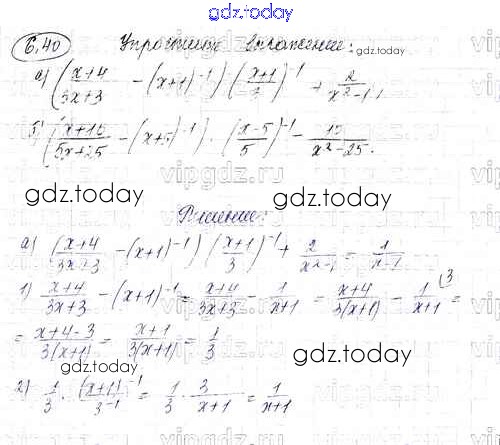 gdz.today
6.40 Упростите выражение:
gdz.today
а) ((x+4)/(3x+3) - (x+1)^-1) · ((x+1)/3)^-1 + 2/(x²-1)
б) ((x+15)/(5x+25) - (x+5)^-1) · ((x-5)/5)^-1 - 15/(x²-25).
gdz.today
gdz.today
Решение:
а) ((x+4)/(3x+3) - (x+1)^-1) ((x+1)/3)^-1 + 2/(x²-1) = 1/(x-1)
1) (x+4)/(3x+3) - (x+1)^-1 = (x+4)/(3x+3) - 1/(x+1) = (x+4)/(3(x+1)) - 1/(x+1) (3 =
= (x+4-3)/(3(x+1)) = (x+1)/(3(x+1)) = 1/3
gdz.today
gdz.today
2) 1/3 · (x+1)^-1/3^-1 = 1/3 · 3/(x+1) = 1/(x+1)